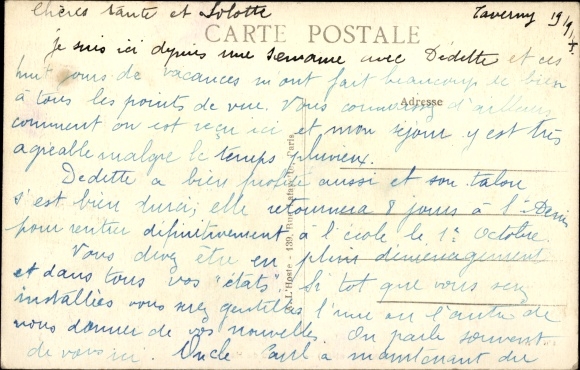 Chères tante et Lolotte
Taverny 19/9/
CARTE POSTALE
Je suis ici depuis une semaine avec Dédette et ces
huit jours de vacances m'ont fait beaucoup de bien
à tous les points de vue. Vous connaissez d'ailleurs
Adresse
comment on est reçu ici et mon séjour y est très
agréable malgré le temps pluvieux.
Dédette a bien profité aussi et son talon
s'est bien durci, elle retournera 8 jours à
pour rentrer définitivement à l'école le 1er Octobre.
Vous devez être en plein déménagement
et dans tous vos "états". Si tôt que vous serez
installées vous serez gentilles l'une ou l'autre de
nous donner de vos nouvelles. On parle souvent
de vous ici. Oncle Paul a maintenant du
A. L'Hoste - 139, Rue Lafayette, Paris